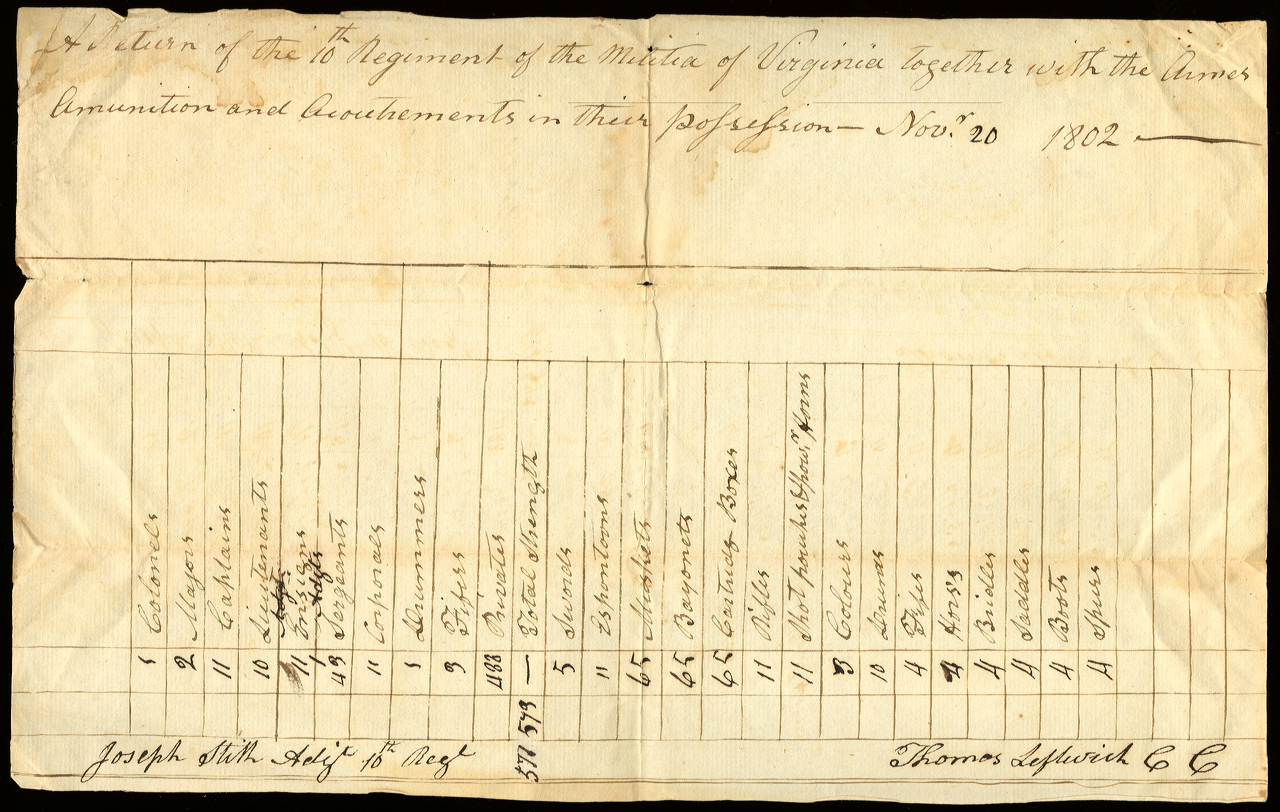 A Return of the 10th Regiment of the Militia of Virginia together with the Armes
Amunition and Acoutrements in their possession — Novr. 20 1802
Colonels
Majors
Captains
Lieutenants
Insigns
Adjts
Sergeants
Corporals
Drummers
Fifers
Privates
Total Strength
Swords
Espontoons
Muskets
Bayonets
Cartridg Boxes
Rifles
Shot pouches & powr. Horns
Colours
Drums
Fifes
Hors's
Bridles
Saddles
Boots
Spurs
2
11
10
11
1
43
11
3
488
—
5
11
65
65
65
11
11
3
10
4
4
4
4
4
4
573
578
Joseph Stith Adjt 10th Regt
Thomas Leftwich C C